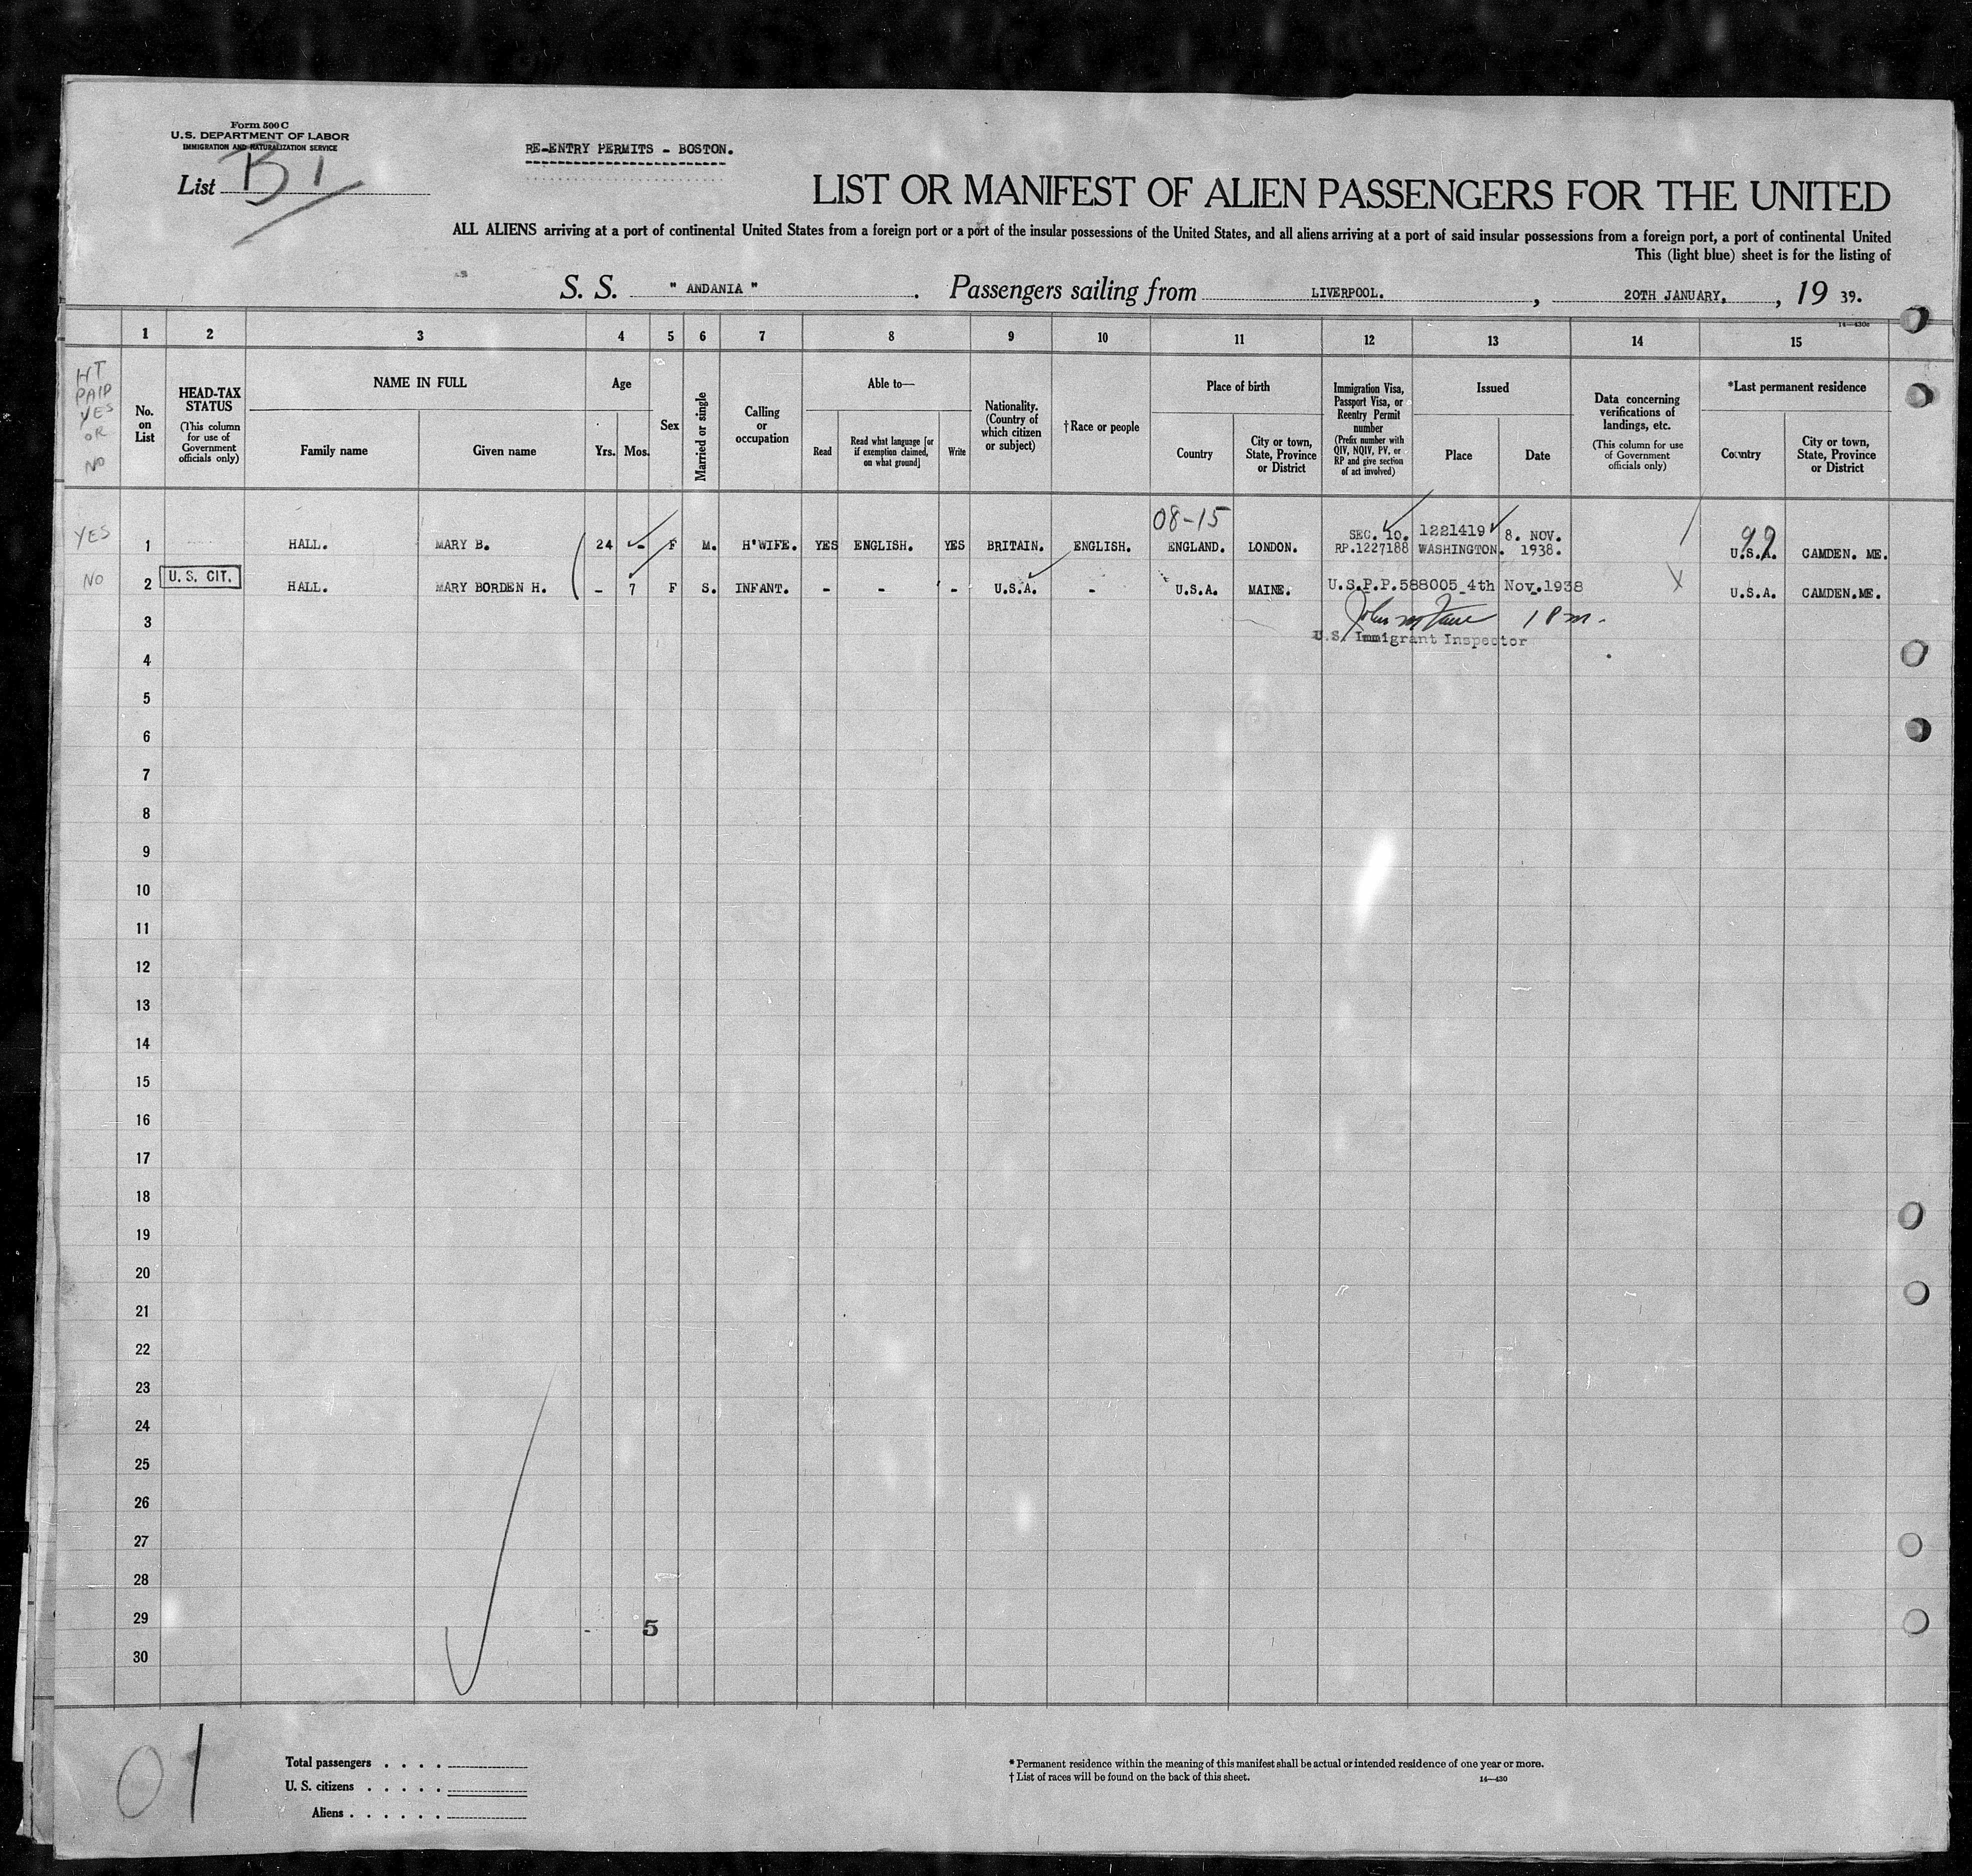 Form 500 C
U.S. DEPARTMENT OF LABOR
IMMIGRATION AND NATURALIZATION SERVICE
List B1
RE-ENTRY PERMITS - BOSTON.
LIST OR MANIFEST OF ALIEN PASSENGERS FOR THE UNITED
ALL ALIENS arriving at a port of continental United States from a foreign port or a port of the insular possessions of the United States, and all aliens arriving at a port of said insular possessions from a foreign port, a port of continental United
This (light blue) sheet is for the listing of
S. S. " ANDANIA ". Passengers sailing from LIVERPOOL. , 20TH JANUARY, , 19 39.
14—430a
1 2 3 4 5 6 7 8 9 10 11 12 13 14 15
HT PAID YES OR NO
No. on List
HEAD-TAX STATUS (This column for use of Government officials only)
NAME IN FULL
Family name
Given name
Age
Yrs. Mos.
Sex
Married or single
Calling or occupation
Able to—
Read
Read what language [or if exemption claimed, on what ground]
Write
Nationality. (Country of which citizen or subject)
†Race or people
Place of birth
Country
City or town, State, Province or District
Immigration Visa, Passport Visa, or Reentry Permit number (Prefix number with QIV, NQIV, PV, or RP and give section of act involved)
Issued
Place
Date
Data concerning verifications of landings, etc. (This column for use of Government officials only)
*Last permanent residence
Country
City or town, State, Province or District
08-15
99
YES 1 HALL. MARY B. 24 - F M. H'WIFE. YES ENGLISH. YES BRITAIN. ENGLISH. ENGLAND. LONDON. SEC. 10. RP.1227188 1221419 WASHINGTON. 8. NOV. 1938. U.S.A. CAMDEN. ME.
NO 2 U. S. CIT. HALL. MARY BORDEN H. - 7 F S. INFANT. - - - U.S.A. - U.S.A. MAINE. U.S.P.P.588005 4th Nov.1938 U.S.A. CAMDEN.ME.
3
1 Pm.
U.S. Immigrant Inspector
4
5
6
7
8
9
10
11
12
13
14
15
16
17
18
19
20
21
22
23
24
25
26
27
28
29
5
30
01
Total passengers . . . .
U. S. citizens . . . . .
Aliens . . . . . .
* Permanent residence within the meaning of this manifest shall be actual or intended residence of one year or more.
† List of races will be found on the back of this sheet.
14—430